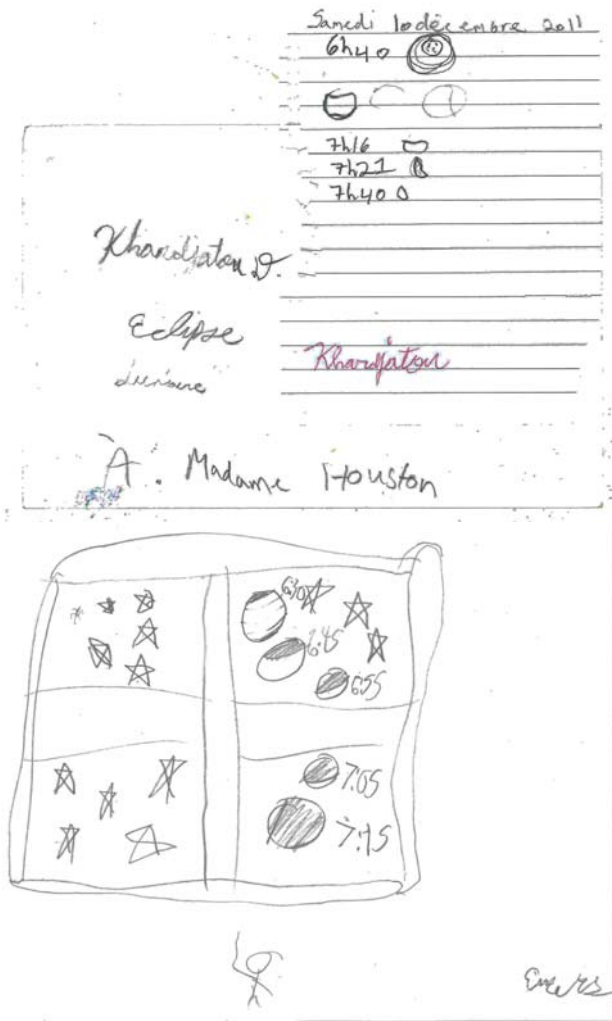 Samedi 10 décembre 2011
6h40
7h16
7h21
7h40
Khardjatou D.
Eclipse
lunaire
Khardjatou
À. Madame Houston
6:30
6:45
6:55
7:05
7:15